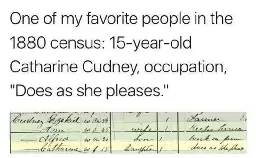 One of my favorite people in the
1880 census: 15-year-old
Catharine Cudney, occupation,
"Does as she pleases."
Cudney Ezekiel Farmer
Ann wife Keeps house
son work on farm
Catharine daughter does as she pleases